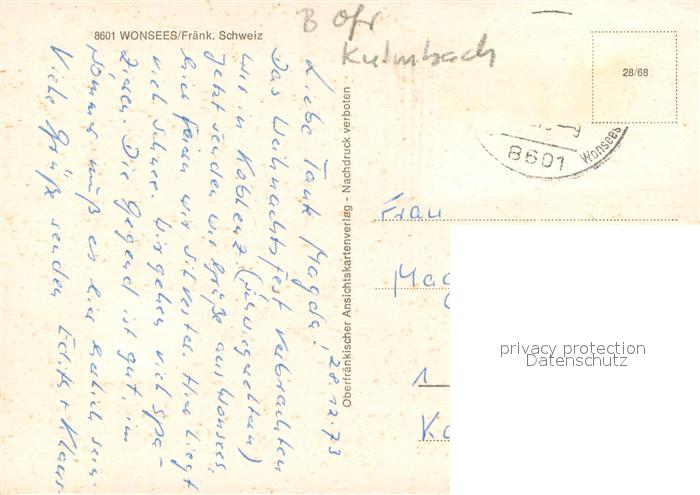 8601 WONSEES/Fränk. Schweiz
B Ofr
Kulmbach
28/68
8601
Wonsees
Oberfränkischer Ansichtskartenverlag - Nachdruck verboten
28.12.73
Liebe Tante Magda!
Das Weihnachtsfest verbrachten
wir in Koblenz. (Schwiegereltern)
Jetzt senden wir Grüße aus Wonsees,
hier feiern wir Silvester. Hier liegt
viel Schnee. Wir gehen viel spa-
zieren. Die Gegend ist gut, im
Sommer muß es hier herrlich sein.
Viele Grüße senden Edith + Klaus
Frau
Mag
1
Ka
privacy protection
Datenschutz